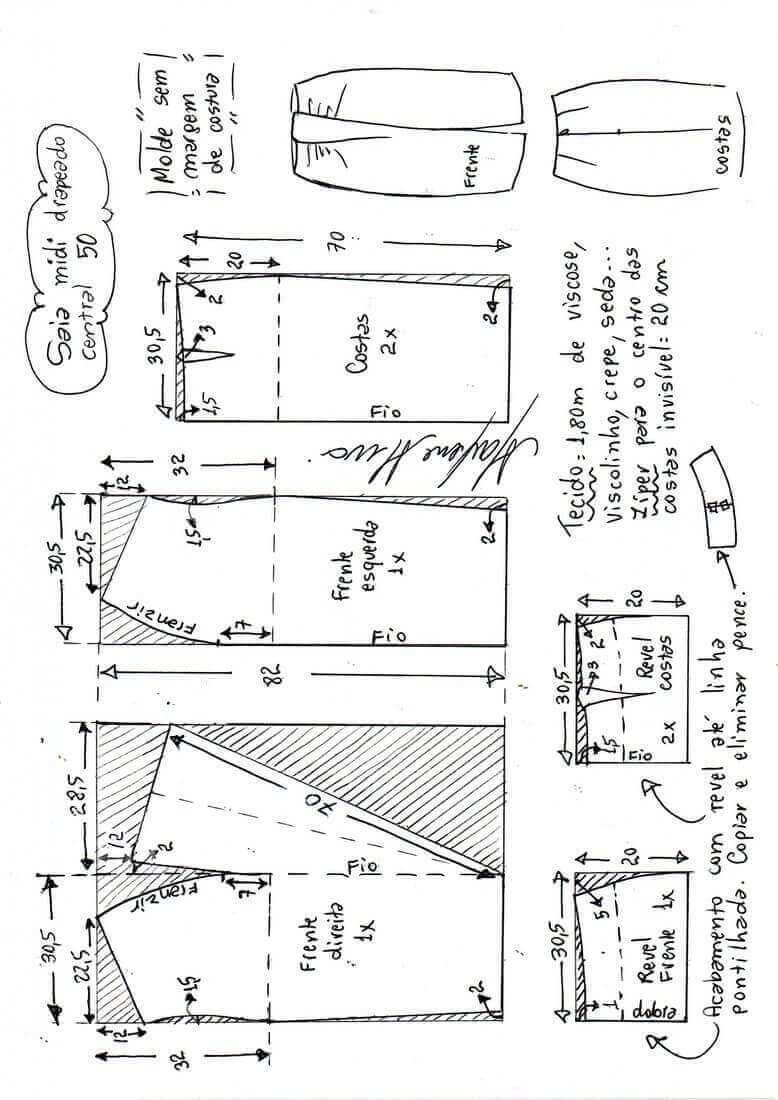 Saia midi drapeado
central 50
Molde sem
margem
de costura
Frente
costas
70
20
30,5
2
3
1,5
2
Costas
2x
Fio
32
12
30,5
22,5
1,5
2
Franzir
7
Frente
esquerda
1x
Fio
82
28,5
12
2
70
Fio
Franzir
7
30,5
22,5
12
32
1,5
2
Frente
direita
1x
Tecido = 1,80m de viscose,
viscolinho, crepe, seda...
Zíper para o centro das
costas invisível = 20 cm
20
30,5
2
3
1,5
Revel
costas
2x
Fio
20
30,5
5
1
Revel
Frente 1x
dobra
Acabamento com revel até linha
pontilhada. Copiar e eliminar pence.